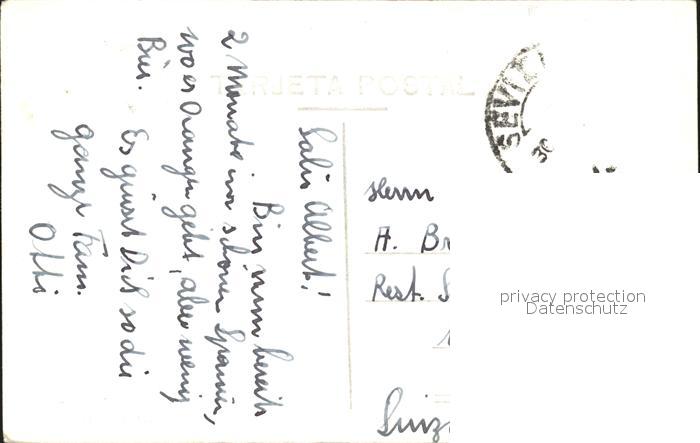 TARJETA POSTAL
SEVILL
30
Salü Albert!
Bin nun bereits
2 Monate im schönen Spanien,
wo es Orangen gibt, aber wenig
Bier. Es grüsst Dich so die
ganze Fam.
Otti
Herrn
A. Br
Rest. S
Suiz
privacy protection
Datenschutz